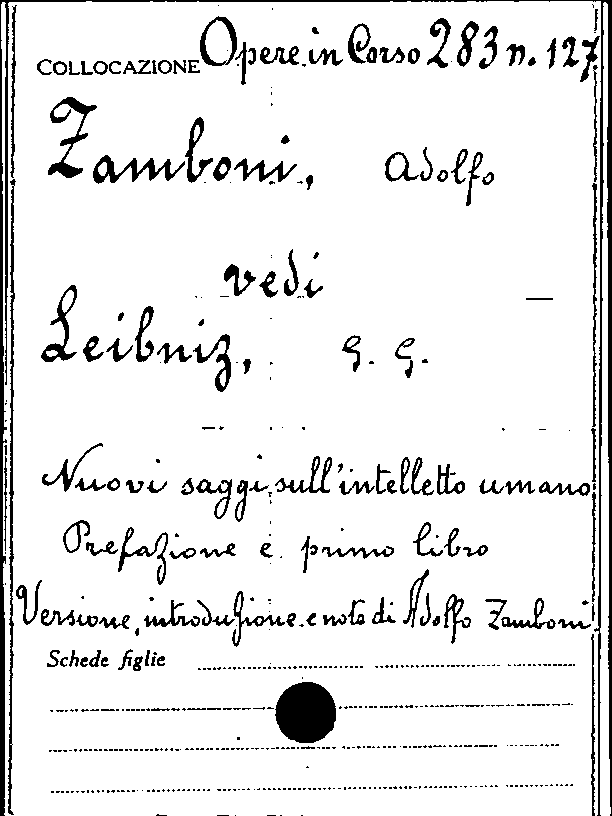 COLLOCAZIONE Opere in Corso 283 n. 127
Zamboni, Adolfo
vedi
Leibniz, G. G.
Nuovi saggi sull'intelletto umano
Prefazione e primo libro
Versione, introduzione e note di Adolfo Zamboni
Schede figlie